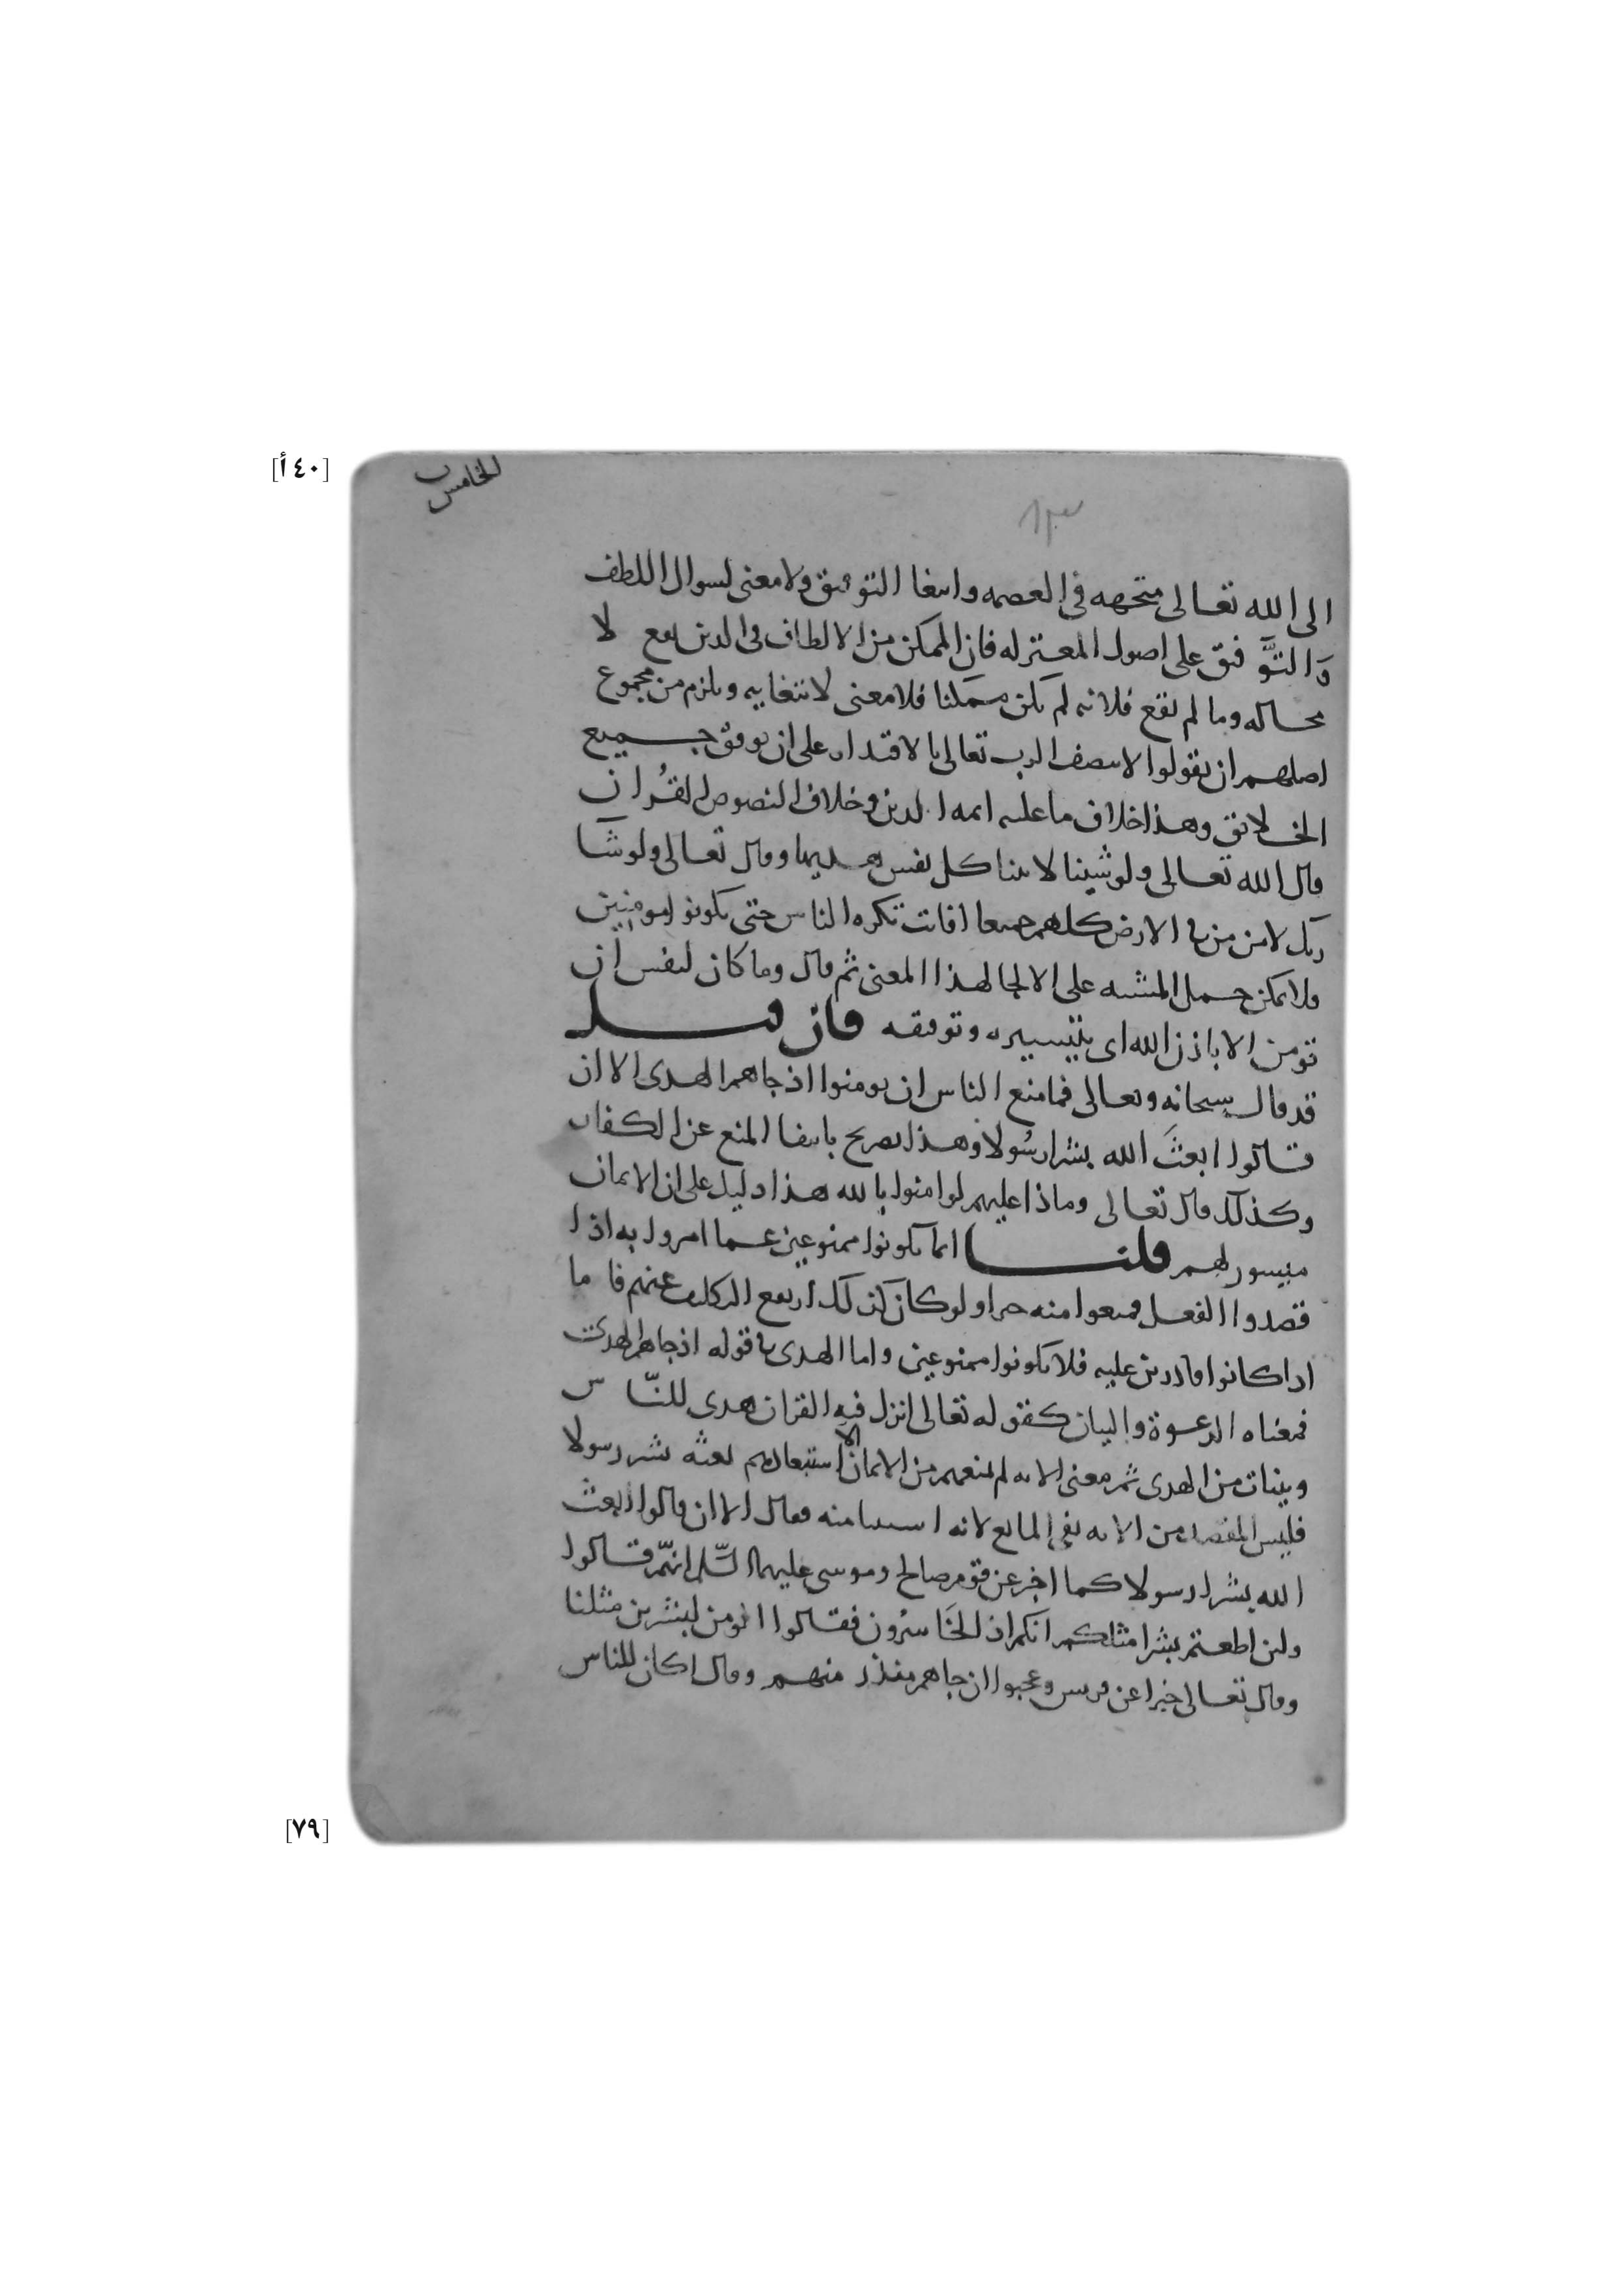 [٤٠أ]
الخامس
الى الله تعالى متجهه فى العصمه وابتغا التوفيق ولا معنى لسوال اللطف
وَالتوَّفيق على اصول المعتزله فان الممكن من الالطاف فى الدين يقع لا
محاله وما لم يقع فلانه لم يكن ممكنا فلا معنى لابتغايه ويلزم من مجموع
اصلهم ان يقولوا لا يتصف الرب تعالى بالاقتدار على ان يوفق جميع
الخلايق وهذا خلاف ما عليه ايمه الدين وخلاف النصوص القُران
قال الله تعالى ولو شينا لاتينا كل نفس هديها وقال تعالى ولو شَا
ربك لامن من فى الارض كلهم جميعا افانت تكره الناس حتى يكونوا مومنين
ولا يمكن حمل المشيه على الالجا لهذا المعنى ثم قال وما كان لنفس ان
تومن الا باذن الله اى بتيسيره وتوفيقه فان قيل
قد قال سبحانه وتعالى فما منع الناس ان يومنوا اذ جاهم الهدى الا ان
قالوا ابعثَ الله بشرا رسُولا وهذا تصريح بانتفا المنع عن الكفار
وكذلك قال تعالى وماذا عليهم لو امنوا بالله هذا دليل على ان الايمان
ميسور لهم قلنا انما يكونوا ممنوعين عما امروا به اذا
قصدوا الفعل فمنعوا منه جبرا ولو كان كذلك ارتفع التكليف عنهم فاما
اذا كانوا قادرين عليه فلا يكونوا ممنوعين واما الهدى فى قوله اذ جاهم الهدى
فمعناه الدعوة والبيان كقوله تعالى انزل فيه القران هدى للنّاس
وبينات من الهدى ثم معنى الايه لم يمنعهم من الايمان الا استبعادهم بعثه بشر رسولا
فليس المقصد من الايه نفى المانع لانه استثنا منه فقال الا ان قالوا ابعث
الله بشرا رسولا كما اخبر عن قوم صالح وموسى عليهما السّلم انهّم قالوا
ولئن اطعتم بشرا مثلكم انكم اذا لخَاسرُون فقالوا انومن لبشرين مثلنا
وقال تعالى خبرا عن قريس وعجبوا ان جاهم منذر منهم وقال اكان للناس
[٧٩]